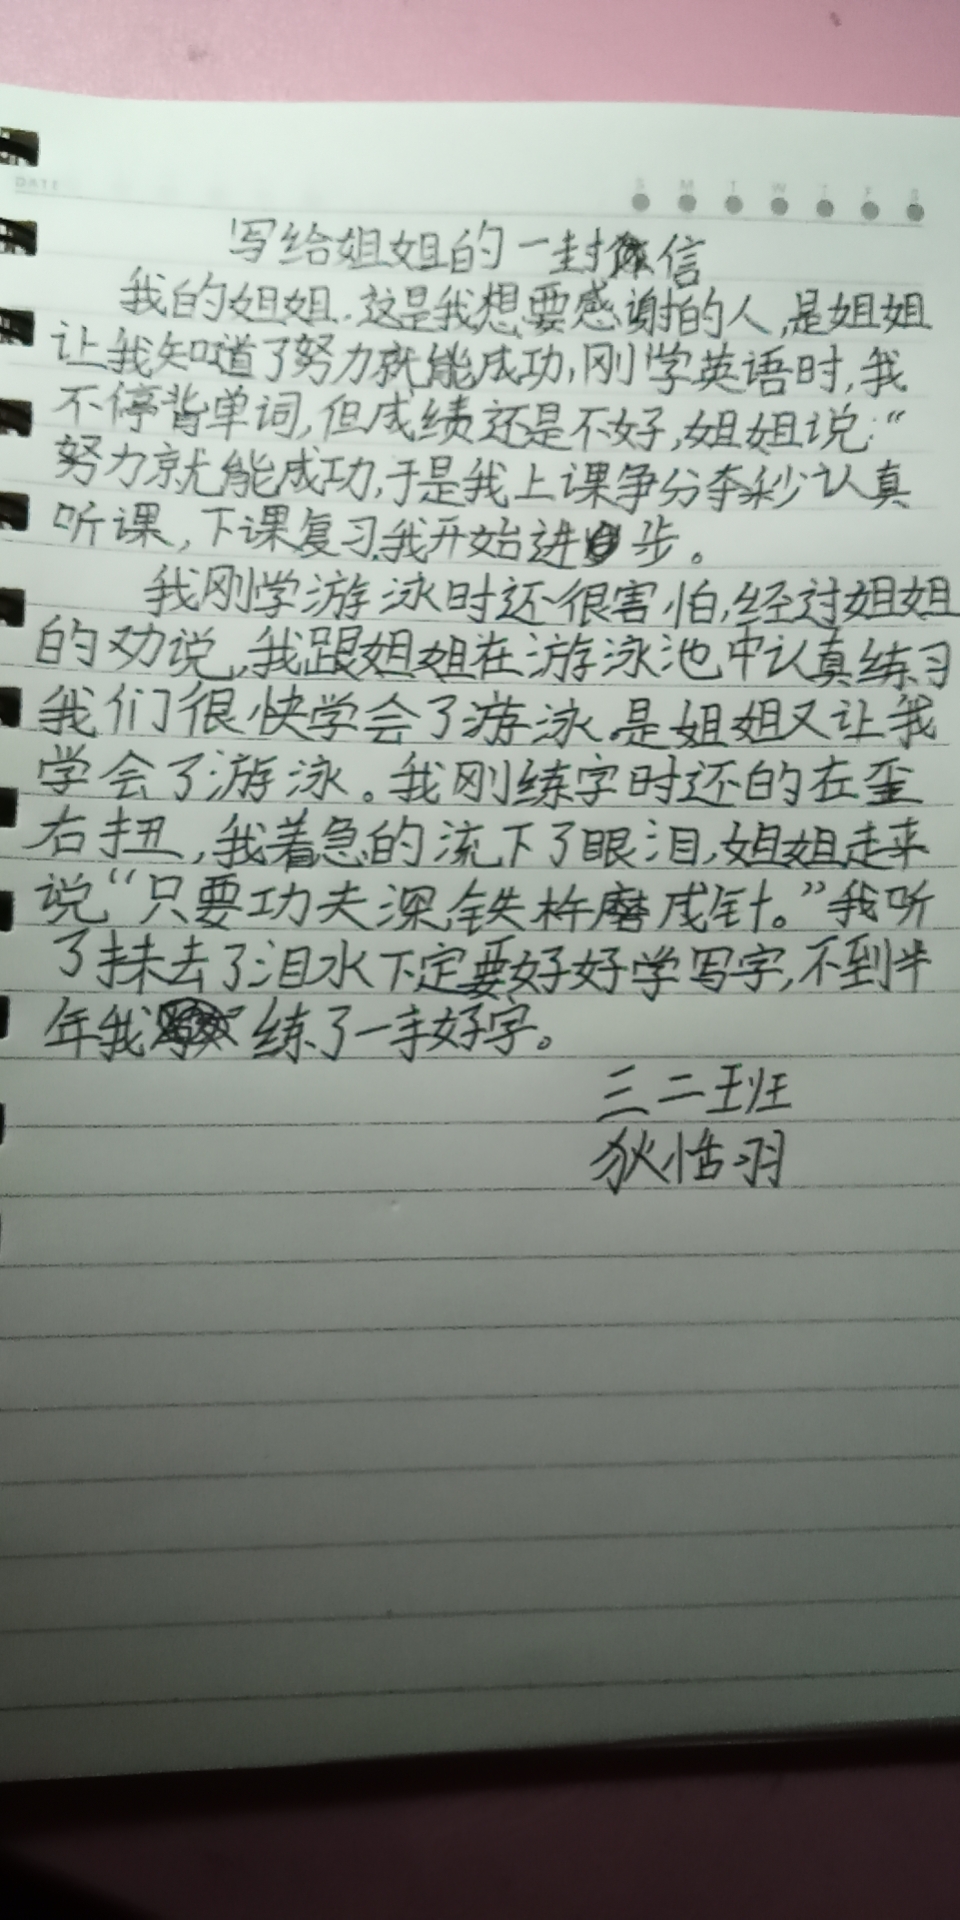 DATE
S M T W T F S
写给姐姐的一封信
我的姐姐.这是我想要感谢的人,是姐姐
让我知道了努力就能成功,刚学英语时,我
不停背单词,但成绩还是不好,姐姐说:“
努力就能成功,于是我上课争分夺秒认真
听课,下课复习.我开始进步。
我刚学游泳时还很害怕,经过姐姐
的劝说,我跟姐姐在游泳池中认真练习
我们很快学会了游泳.是姐姐又让我
学会了游泳。我刚练字时还的在歪
右扭,我着急的流下了眼泪,姐姐走来
说“只要功夫深,铁杵磨成针。”我听
了抹去了泪水下定要好好学写字,不到半
年我练了一手好字。
三二班
狄恬羽